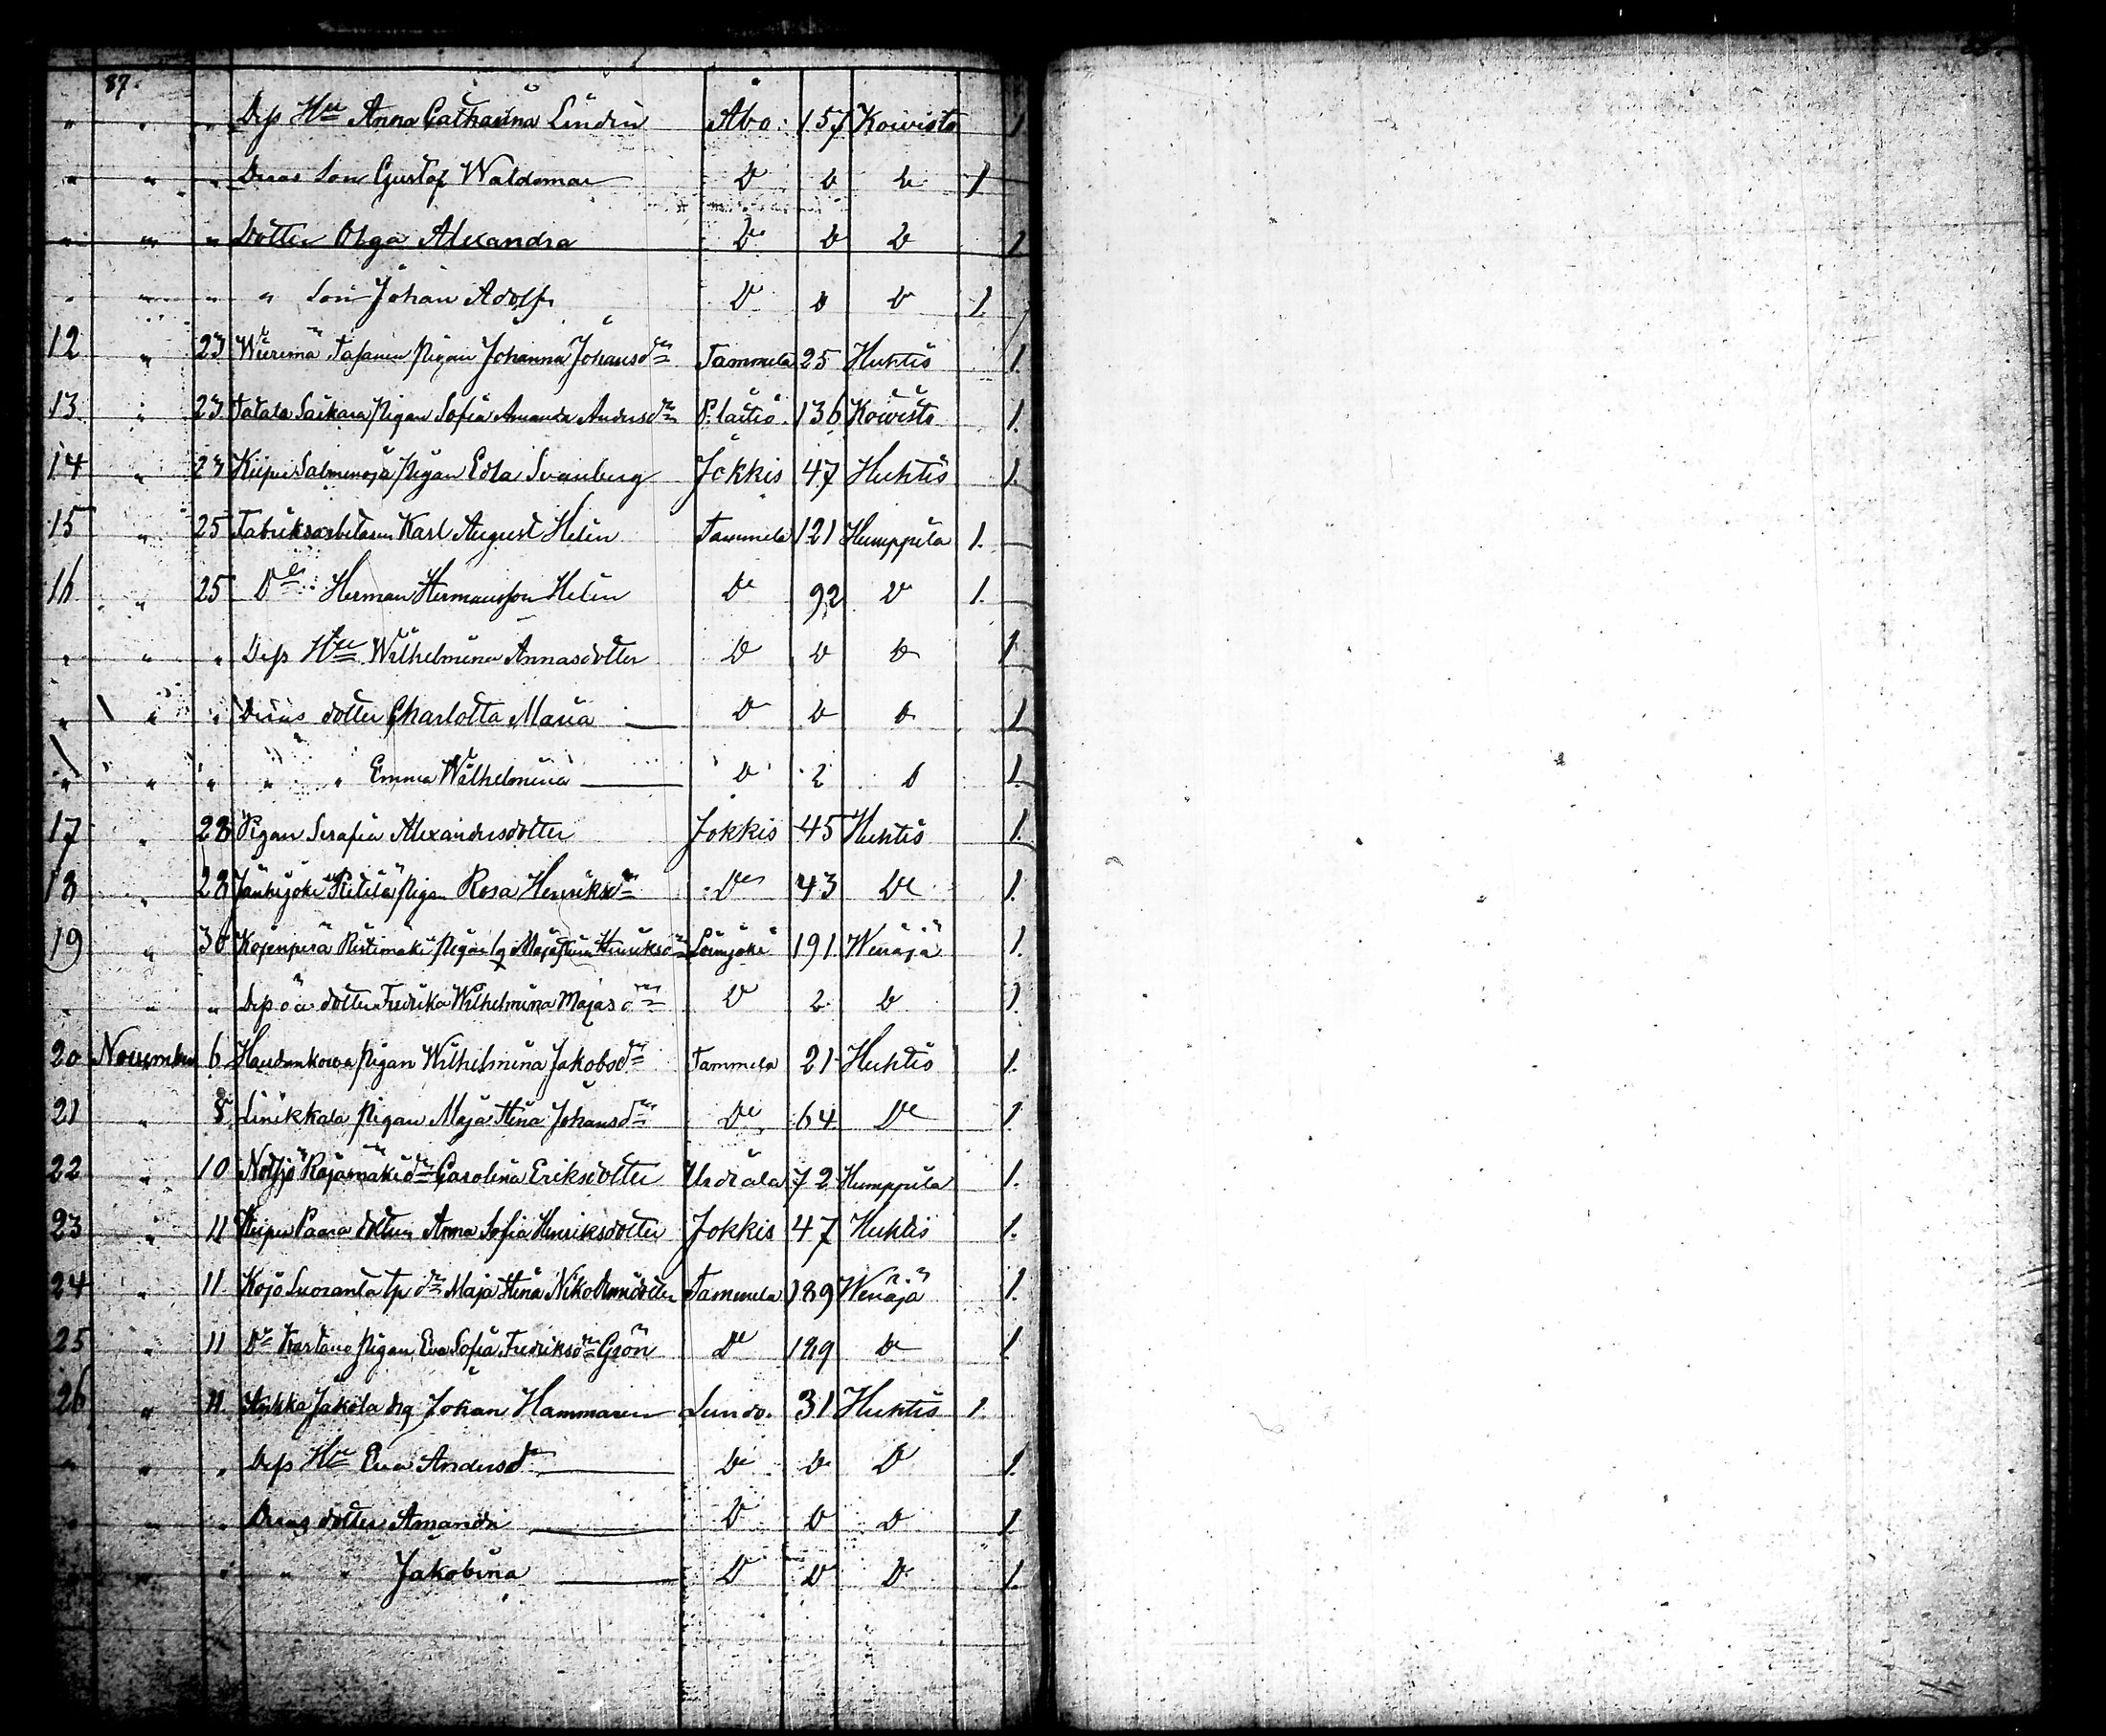 87.
" " " Dess Hu Anna Catharina Lindin Åbo: 157 Koivisto 1
" " " Deras Son Gustaf Waldemar D D D 1
" " " Dotter Olga Alexandra D D D 1
" " " " Son Johan Adolf D D D 1.
12 " 23 Tafanen Pigan Johanna Johansdr Tammela 25 Huhtis 1.
13 " 23 Tatala Saikara Pigan Sofia Amanda Andersdr P. laitio 136 Koivisto 1.
14 " 23 Kiipu Salmenoja Pigan Edla Svanberg Jokkis 47 Huhtis 1.
15 " 25 Fabriksarbetaren Karl August Helin Tammela 121 Humppila 1.
16 " 25 Do Herman Hermansson Helin Do 92 D 1.
" " " Dess Hu Wilhelmina Annasdotter D D D 1
" " " Deras dotter Charlotta Maria D D D 1
" " " " " Emma Wilhelmina D 2 D 1.
17 " 28 Pigan Serafia Alexandersdotter Jokkis 45 Huhtis 1.
18 " 28 Pigan Rosa Henriksdr Do 43 Do 1.
19 " 30 Kojenperä Ristimäki Pigan Maja Stina Henriksdr Loimjoki 191 Wenäjä 1.
" " " Dess oä dotter Fredrika Wilhelmina Majasdr D 2 D 1.
20 November 6 Pigan Wilhelmina Jakobsdr Tammela 21 Huhtis 1.
21 " 8 Linikkala Pigan Maja Stina Johansdr Do 64 Do 1.
22 " 10 Rajamäki dr Carolina Eriksdotter Urdiala 72 Humppila 1.
23 " 11 Kiipu Paara dottern Anna Sofia Henriksdotter Jokkis 47 Huhtis 1.
24 " 11 Kojo Suoranta tp dr Maja Stina Tammela 189 Wenäjä 1.
25 " 11 Do Kartano Pigan Eva Sofia Fredriksdr Grön Do 189 Do 1
26 " 11. Jakola Johan Hammaren Lundo. 31 Huhtis 1.
" " " Dess Hu Eva Andersdr Do Do D 1.
" " " Deras dotter Amanda D D D 1
" " " " " Jakobina D D D 1.